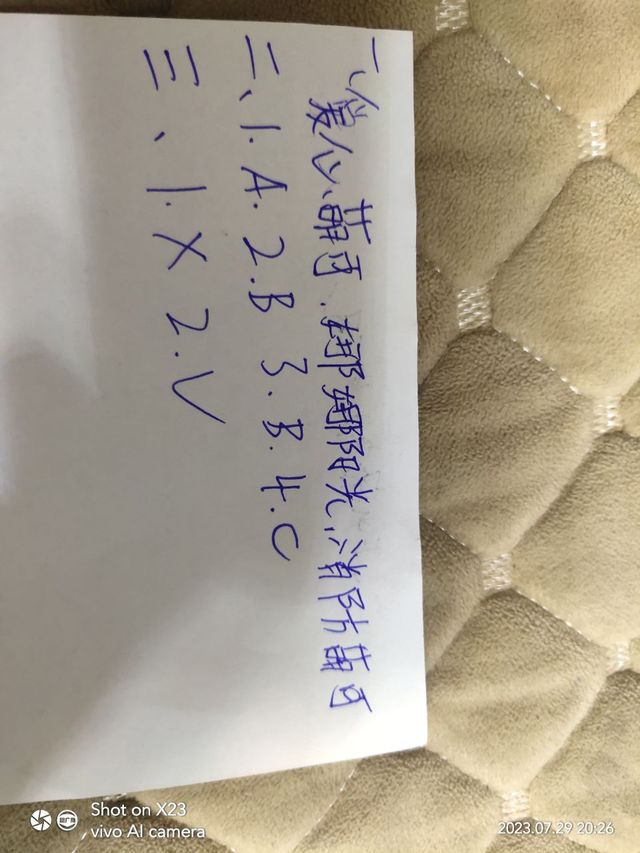 一、爱心萌可、娜娜阳光、消防萌可
二、1.A.2.B 3.B.4.C
三、1.X 2.√
Shot on X23
vivo AI camera
2023.07.29 20:26